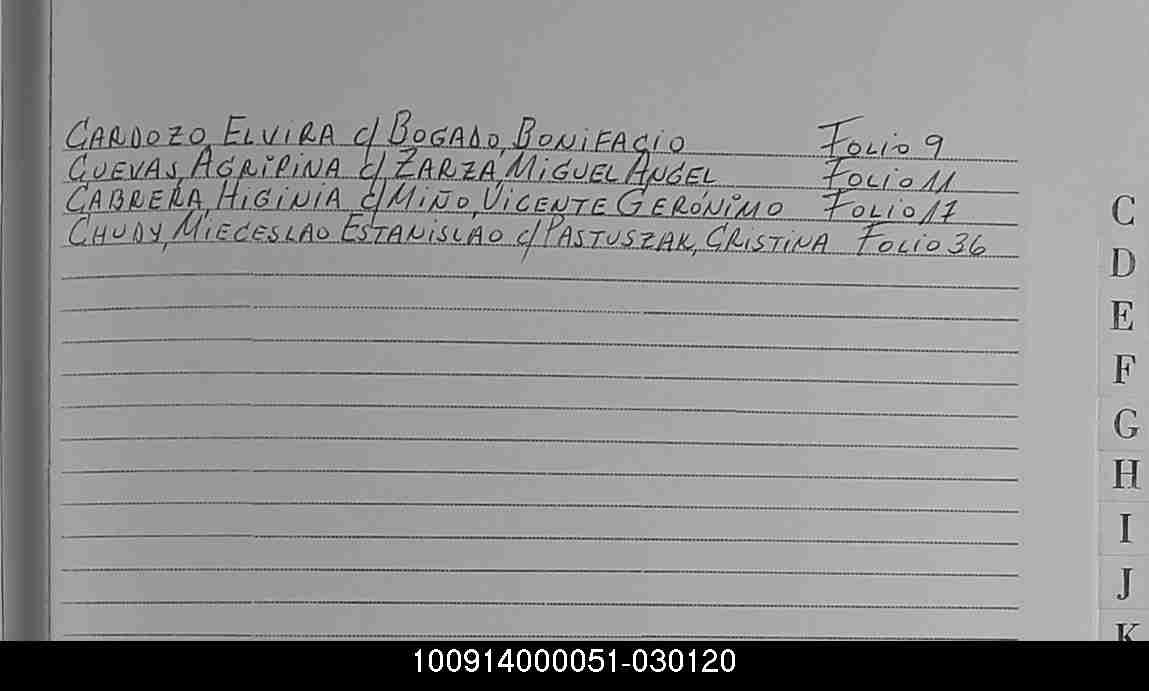 CARDOZO, ELVIRA c/ BOGADO, BONIFACIO FOLIO 9
CUEVAS, AGRIPINA c/ ZARZA, MIGUEL ANGEL FOLIO 11
CABRERA, HIGINIA c/ MIÑO, VICENTE GERÓNIMO FOLIO 17
CHUDY, MIECESLAO ESTANISLAO c/ PASTUSZAK, CRISTINA FOLIO 36
C
D
E
F
G
H
I
J
K
100914000051-030120